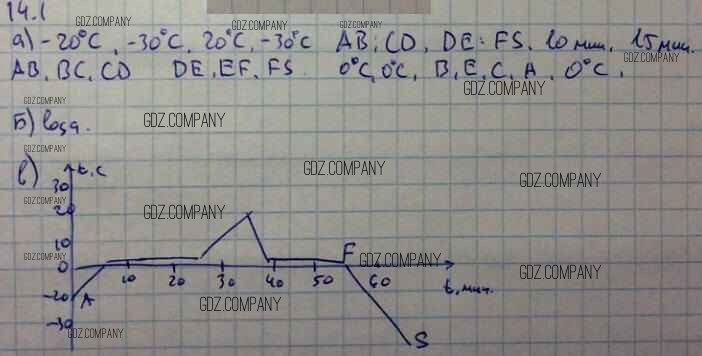 14.1
GDZ.COMPANY GDZ.COMPANY GDZ.COMPANY
а) -20°C, -30°C, 20°C, -30°C AB; CD, DE; FS, 10 мин, 15 мин.
GDZ.COMPANY
AB, BC, CD DE, EF, FS 0°C, 0°C, B, E, C, A, 0°C,
GDZ.COMPANY
GDZ.COMPANY
Б)
GDZ.COMPANY
GDZ.COMPANY
в) t, c
GDZ.COMPANY
GDZ.COMPANY
30
20
GDZ.COMPANY
GDZ.COMPANY
10
F
GDZ.COMPANY
GDZ.COMPANY
GDZ.COMPANY
0
10 20 30 40 50 60
t, мин.
-20 A
GDZ.COMPANY
-30
GDZ.COMPANY
S